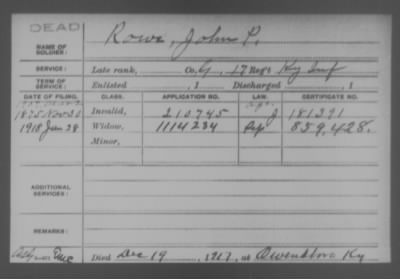 DEAD
NAME OF SOLDIER: Rowe, John P.
SERVICE: Late rank, Co. G, 17 Reg't Ky Inf
TERM OF SERVICE: Enlisted , 1 Discharged , 1
DATE OF FILING. CLASS. APPLICATION NO. LAW. CERTIFICATE NO.
1875 Nov 30 Invalid, 210,745 J 181,391
1918 Jan 28 Widow, 1114234 859,428.
Minor,
ADDITIONAL SERVICES:
REMARKS:
Died Dec 19, 1917, at Owensboro Ky